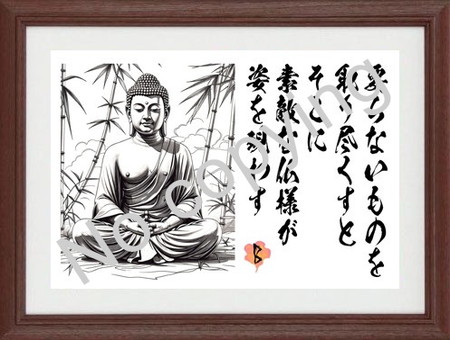 要らないものを
取り尽くすと
そこに
素敵な仏様が
姿を現わす
No copying